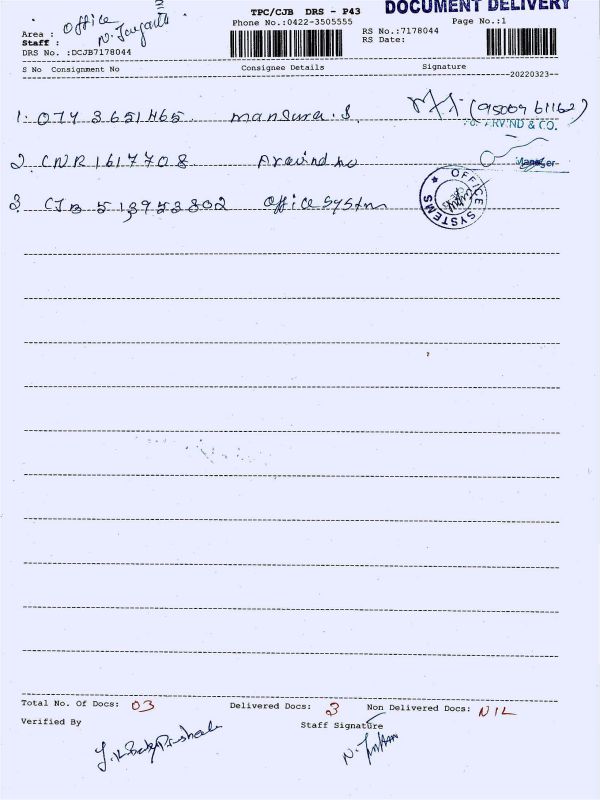 DOCUMENT DELIVERY
TPC/CJB DRS - P43
Phone No.:0422-3505555
Page No.:1
Area : Office
Staff : N.
DRS No. :DCJB7178044
RS No.:7178044
RS Date:
S No Consignment No Consignee Details Signature
20220323
1. 074 3651465 Mansura.S (9500961162)
ARVIND & CO.
2. CNR1617708 Aravind
Manager
3. CJB 513953802 Office System
OFFICE SYSTEMS
Total No. Of Docs: 03 Delivered Docs: 3 Non Delivered Docs: NIL
Verified By Staff Signature